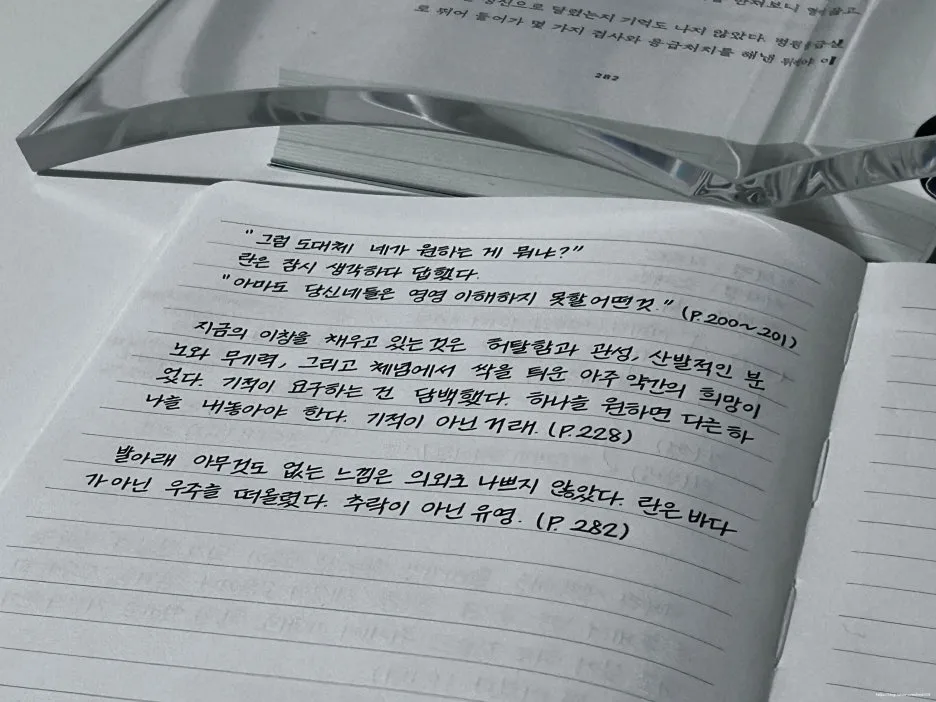 으로 달렸는지 기억도 나지 않았다.
로 뛰어 들어가 몇 가지 검사와 응급처치를 해낸 뒤야 이
282
"그럼 도대체 네가 원하는 게 뭐냐?"
란은 잠시 생각하다 답했다.
"아마도 당신네들은 영영 이해하지 못할 어떤 것." (P.200~201)
지금의 이창을 채우고 있는 것은 허탈함과 관성, 산발적인 분
노와 무기력, 그리고 체념에서 싹을 틔운 아주 약간의 희망이
었다. 기적이 요구하는 건 담백했다. 하나를 원하면 다른 하
나를 내놓아야 한다. 기적이 아닌 거래. (P.228)
발아래 아무것도 없는 느낌은 의외로 나쁘지 않았다. 란은 바다
가 아닌 우주를 떠올렸다. 추락이 아닌 유영. (P. 282)